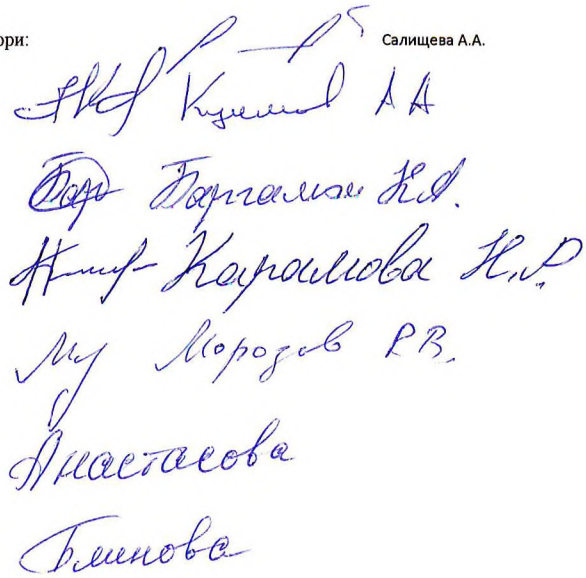 ори: Салищева А.А.
А А
Баргамон Н.А.
Карамова Н.Р.
Морозов Р.В.
Анастасова
Блинова